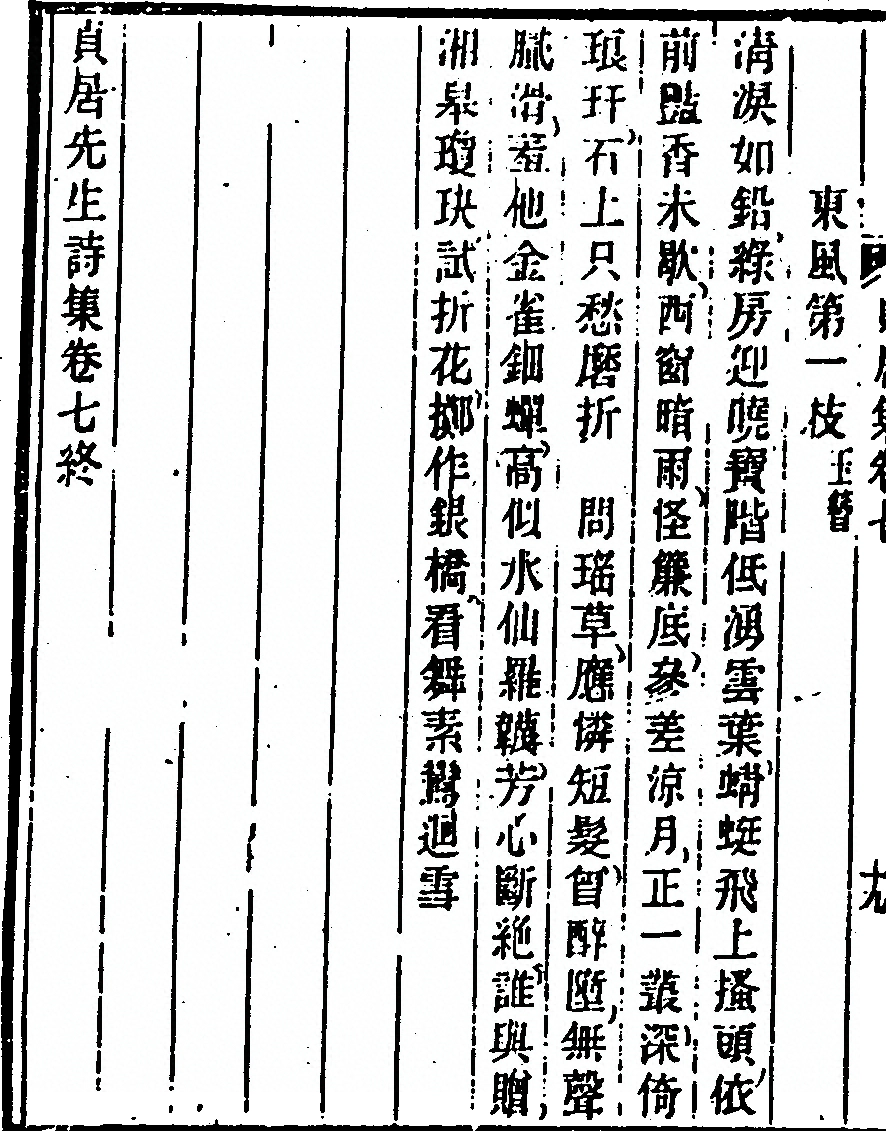 貞居集卷七
十九
東風第一枝 玉簪
清淚如鉛綠房迎曉寶階低湧雲葉蜻蜓飛上搔頭依
前豔香未歇西窗暗雨怪簾底參差涼月正一叢深倚
琅玕石上只愁磨折 問瑤草應憐短髮曾醉墮無聲
膩滑羞他金雀鈿蟬高似水仙羅韈芳心斷絶誰與贈
湘臯瓊玦試折花擲作銀橋看舞素鸞迴雪
貞居先生詩集卷七終